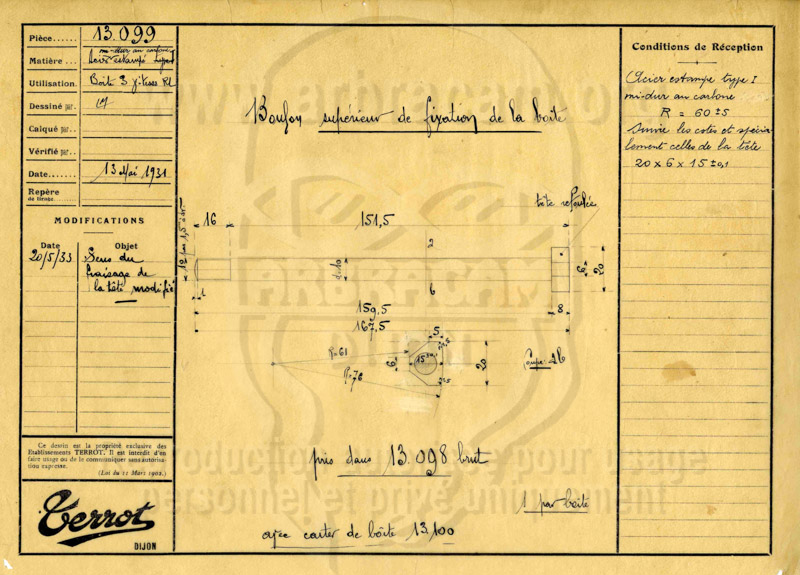 Pièce...... 13.099
mi-dur au carbone
Matière... Acier estampé type I
Utilisation. Boîte 3 vitesses RL
Dessiné par.
Calqué par..
Vérifié par..
Date....... 13 Mai 1931
Repère
de tirage
MODIFICATIONS
Date Objet
20/5/33 Sens du
fraisage de
la tête modifié
Ce dessin est la propriété exclusive des
Etablissements TERROT. Il est interdit d'en
faire usage ou de le communiquer sans autorisa-
tion expresse.
(Loi du 11 Mars 1902.)
Terrot
DIJON
Boulon supérieur de fixation de la boîte
tête refoulée
16
151,5
1
6
6
20
159,5
8
167,5
5
R=61
R=76
6
15
20
Coupe ab
pris dans 13.098 brut
1 par boîte
avec carter de boîte 13,100
Conditions de Réception
Acier estampé type I
mi-dur au carbone
R = 60 ± 5
Suivre les cotes et spécia-
lement celles de la tête
20 x 6 x 15 ± 0,1
personnel et privé uniquement